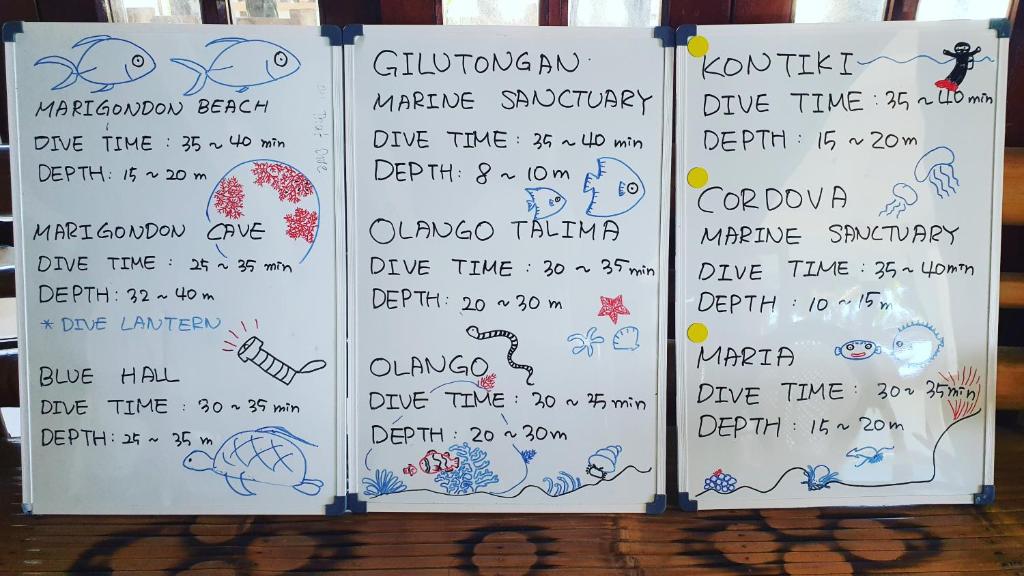 MARIGONDON BEACH
DIVE TIME : 35 ~ 40 min
DEPTH: 15 ~ 20 m
MARIGONDON CAVE
DIVE TIME : 25 ~ 35 min
DEPTH: 32 ~ 40 m
* DIVE LANTERN
BLUE HALL
DIVE TIME : 30 ~ 35 min
DEPTH: 25 ~ 35 m
GILUTONGAN
MARINE SANCTUARY
DIVE TIME : 35 ~ 40 min
DEPTH: 8 ~ 10 m
OLANGO TALIMA
DIVE TIME : 30 ~ 35 min
DEPTH: 20 ~ 30 m
OLANGO
DIVE TIME : 30 ~ 25 min
DEPTH: 20 ~ 30m
KONTIKI
DIVE TIME : 35 ~ 40 min
DEPTH : 15 ~ 20m
CORDOVA
MARINE SANCTUARY
DIVE TIME : 35 ~ 40min
DEPTH : 10 ~ 15m
MARIA
DIVE TIME : 30 ~ 35min
DEPTH : 15 ~ 20m